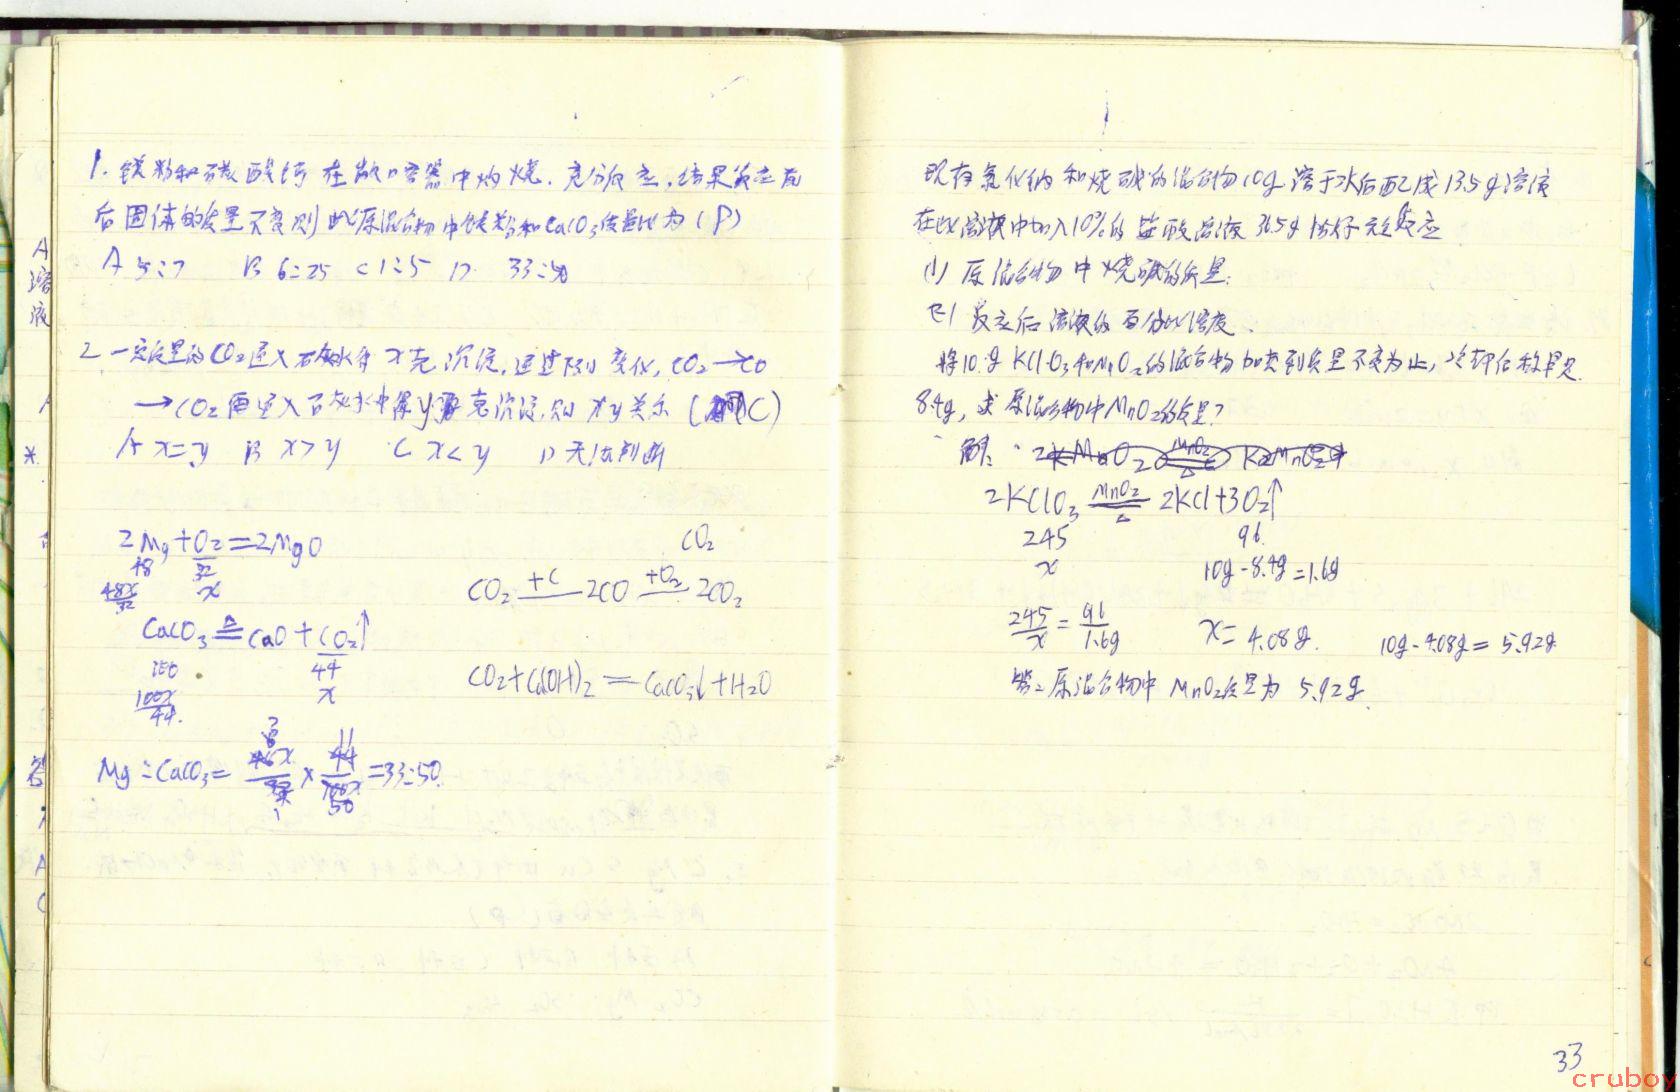 1. 镁粉和碳酸钙在敞口容器中灼烧.充分反应,结果
后固体的质量不变则此原混合物中镁粉和CaCO3质量比为(D)
A 5:7 B 6:25 C 1:5 D 33:50
2 一定质量的CO2通入石灰水中x克沉淀,通过下列变化,CO2→CO
→CO2再通入石灰水中得y克沉淀,则xy关系(C)
A x=y B x>y C x<y D 无法判断
2Mg+O2=2MgO
48 32
48x/32 x
CaCO3 ≜ CaO+CO2↑
100 44
100x/44 x
CO2
CO2 +C 2CO +O2 2CO2
CO2+Ca(OH)2=CaCO3↓+H2O
Mg:CaCO3= × =33:50
现有氯化钠和烧碱的混合物10g溶于水后配成13.5g溶液
在此溶液中加入10%的盐酸溶液36.5g恰好完全反应
(1) 原混合物中烧碱的质量:
(2) 反应后溶液的百分比浓度.
将10.g KClO3和MnO2的混合物加热到质量不变为止,冷却后称量是
8.4g,求原混合物中MnO2的质量?
解:
2KClO3 MnO2 △ 2KCl+3O2↑
245 96
x 10g-8.4g=1.6g
245/x = 96/1.6g x=4.08g. 10g-4.08g=5.92g
答:原混合物中MnO2质量为5.92g.
33
cruboy
A
溶
液
A
答
A
C